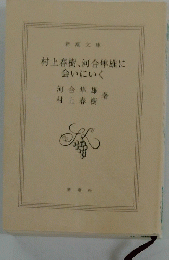 新潮文庫
村上春樹、河合隼雄に
会いにいく
河合隼雄
村上春樹 著
新潮社